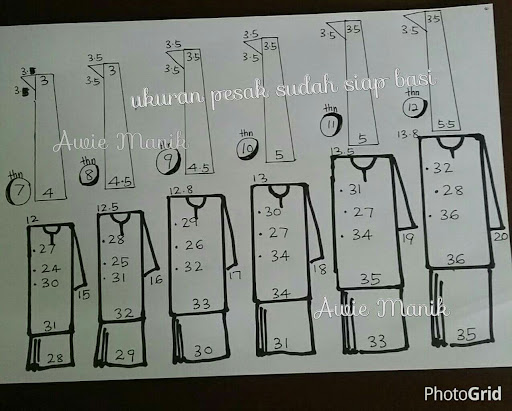 3.5 3.5 3 3.5 3.5 3 3.5 3.5 35 3.5 3.5 35 3.5 3.5 35 3.5 3.5 35
ukuran pesak sudah siap basi
Awie Manik
thn 7 4
thn 8 4.5
thn 9 4.5
thn 10 5
thn 11 5
thn 12 5.5
12 12.5 12.8 13 13.5 13.8
27 28 29 30 31 32
24 25 26 27 27 28
30 31 32 34 34 36
15 16 17 18 19 20
31 32 33 34 35 36
Awie Manik
28 29 30 31 33 35
PhotoGrid